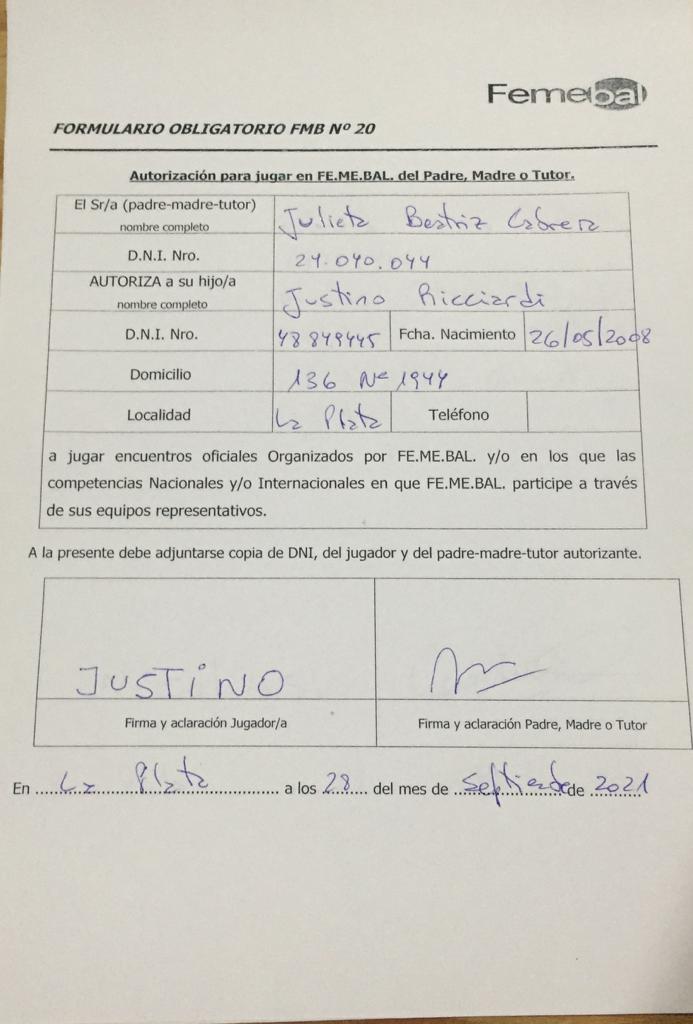 Femebal
FORMULARIO OBLIGATORIO FMB Nº 20
Autorización para jugar en FE.ME.BAL. del Padre, Madre o Tutor.
El Sr/a (padre-madre-tutor)
nombre completo
Julieta Beatriz Cabrera
D.N.I. Nro.
24.040.044
AUTORIZA a su hijo/a
nombre completo
Justino Ricciardi
D.N.I. Nro.
48849445
Fcha. Nacimiento
26/05/2008
Domicilio
136 Nº 1944
Localidad
La Plata
Teléfono
a jugar encuentros oficiales Organizados por FE.ME.BAL. y/o en los que las
competencias Nacionales y/o Internacionales en que FE.ME.BAL. participe a través
de sus equipos representativos.
A la presente debe adjuntarse copia de DNI, del jugador y del padre-madre-tutor autorizante.
JUSTINO
Firma y aclaración Jugador/a
Firma y aclaración Padre, Madre o Tutor
En La Plata a los 28 del mes de Septiembre de 2021